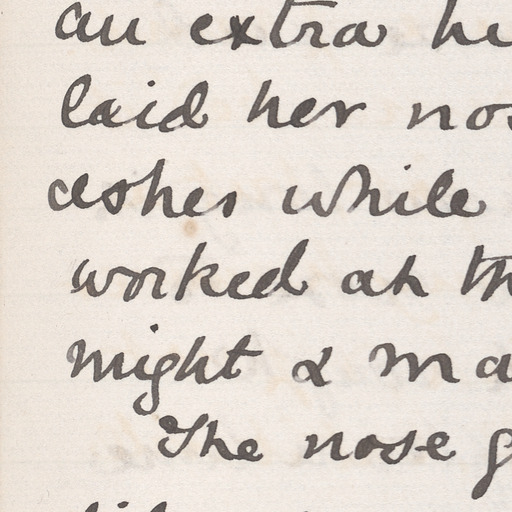 an extra hi
laid her nos
ashes while
worked at th
might & ma
The nose g